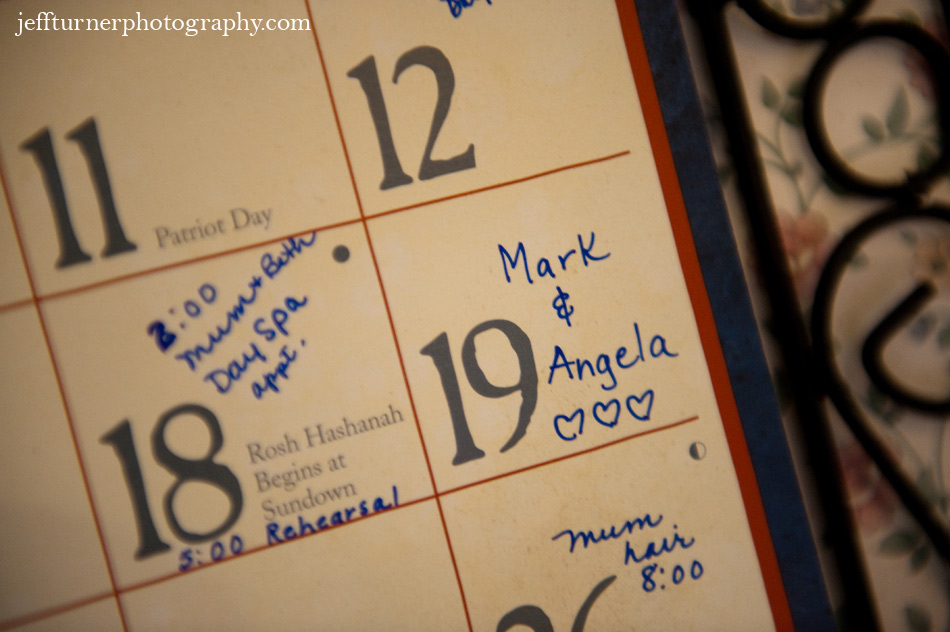 jeffturnerphotography.com
12
11
Patriot Day
Mark
&
Angela
19
8:00
Mum + Beth
Day Spa
appt.
18
Rosh Hashanah
Begins at
Sundown
5:00 Rehearsal
mum
hair
8:00
26